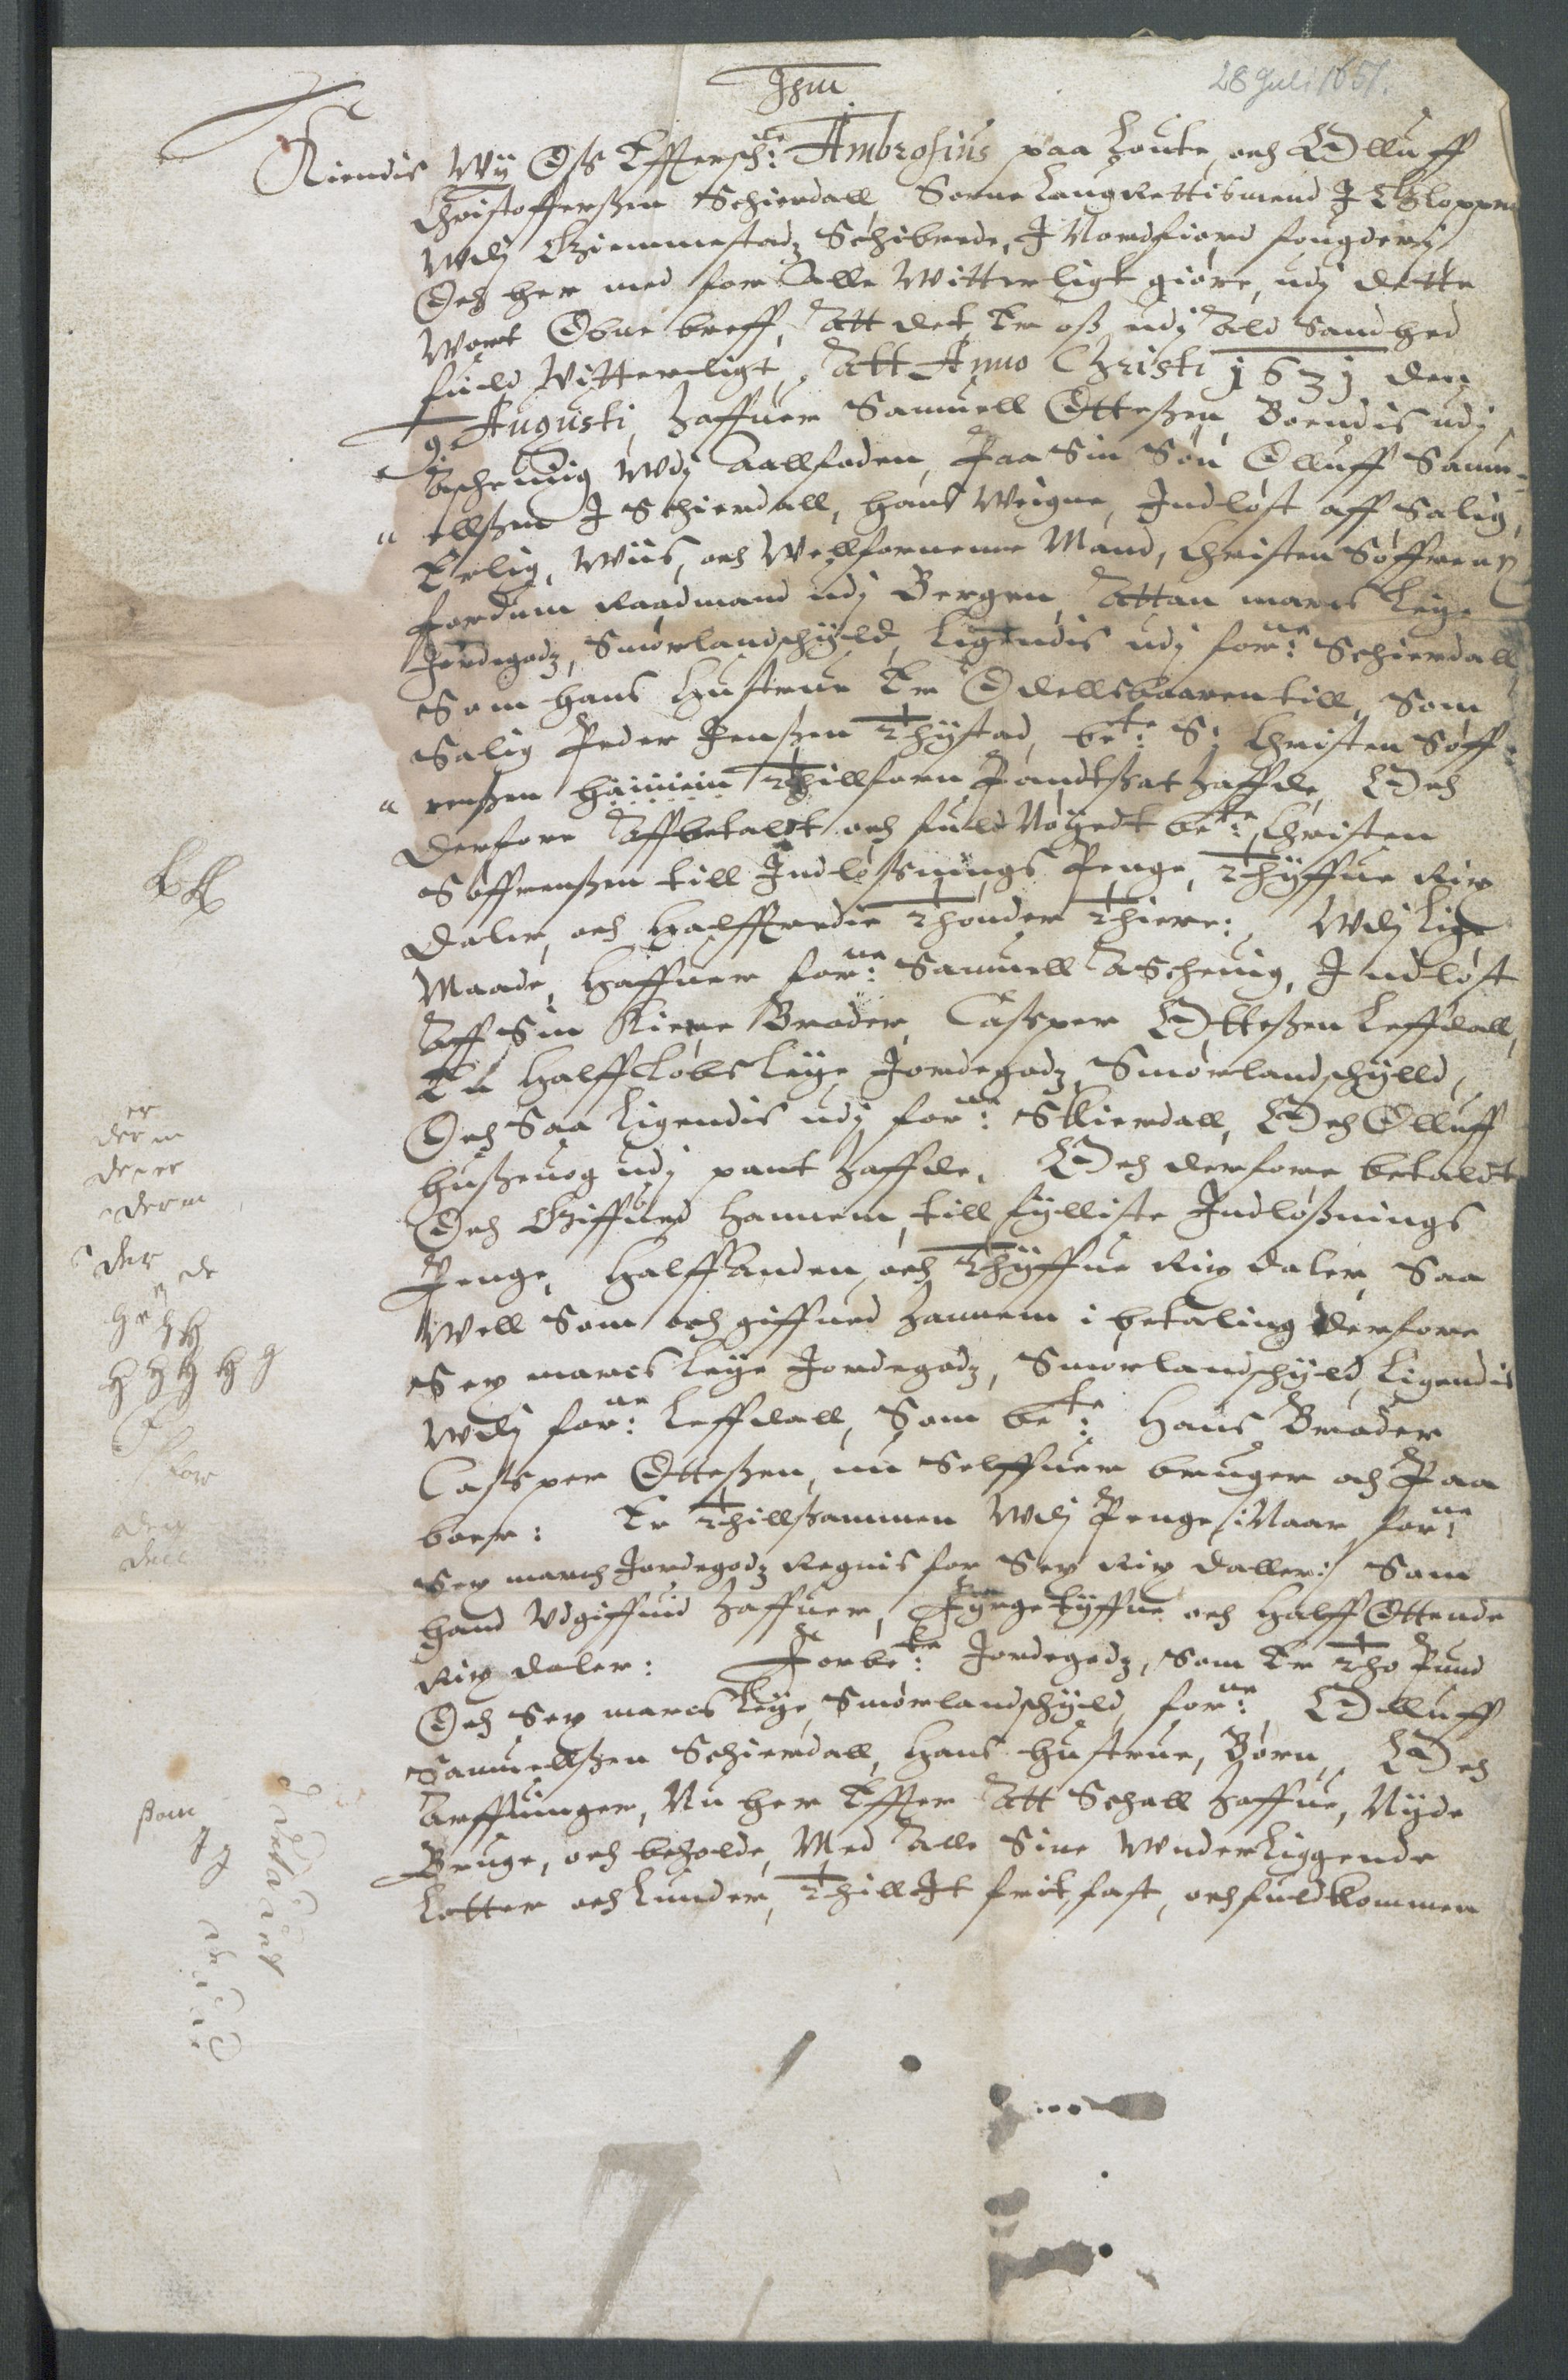 Jhm
28 Juli 1651.
Kiendis Wij Oss Effterschr: Ambrosius paa Houke, och Olluff
Christofferßen Schierdall, Sorne LaugRettismend J Gloppen
Wdj Giemmestadz Schibrede, J Nordfiord fougderj
Och her med for Alle Witterligt giøre, udj dette
Wort Obne breff, Att det Er oss udj Ald Sandhed
fuld Vitterligt, Att Anno Christi 1631 den
9. Augusti, Haffuer Samuell Otteßen Boendis udj
Ascheuiig Wdj Aallfoden, Paa Sin Søn Olluff Samu-
ellßen J Schierdall, hans Weigne, Jndløst aff Salig,
Erlig, Wiis, och Wellfornemme Mand, Christen Søffrenß
fordum Raadmand udj Bergen, Attan marcs leye
Jordegodz, Smørlandschyld, Ligendis udj forne: Schierdall,
Som hans Hustrue Er Odellsbaaren till, Som
Salig Peder Jenßen Thystad, bete: S: Christen Søff-
renßen hannem Thillforn Pandtßat Haffde, Och
Derfore Affbetaldt och fuld Nøyedt bete: Christen
Søffrenßen till Jndløßnings Penge, Thyffue Rix
Daler, och Halfftredie Thønder Thiere: Wdj Lige
Maade, Haffuer forne: Samuell AScheuig, Jndløst
Aff Sin Kiere Broder, Casper Otteßen Leffdall,
Et Halff Løbs Leye Jordegodz, Smørlandschylld,
Och Saa Ligendis udj forne: Skierdall, Och Olluff
Hußeuog udj pant Haffde. Och derfore betaldt
Och Giffued Hannem, till fylliste Jndløßnings
Penge, HalffAnden och Thyffue Rix daler, Saa
Well Som och giffued Hannem i betaling derfore
Sex marcs leye Jordegodz, Smørlandschyld, Ligendis
Wdj forne: Leffdall, Som bete: Hans Broder
Casper Otteßen, nu Selffuer bruger och Paa
boer: Er Thillsammen Wdj Penge /: Naar forne
Sex march Jordegodz Regnis for Sex Rix Daller :/ Som
Hand Vdgiffuid Haffuer, Fyrgetyffue och Halff Ottende
Rix daler: Forbete: Jordegodz, Som Er Tho Pund
Och Sex marcs leye Smørlandschyld, forne: Olluff
Samuellßen Schierdall, Hans Hustrue, Børn, Och
Arffuinger, Nu her Effter Att Schall Haffue, Nyde
Bruge, och beholde, Med Alle Sine Wnderliggende
Lotter och Lunder, Thill Et frit, fast, och fuldkommen
er
der
der
den